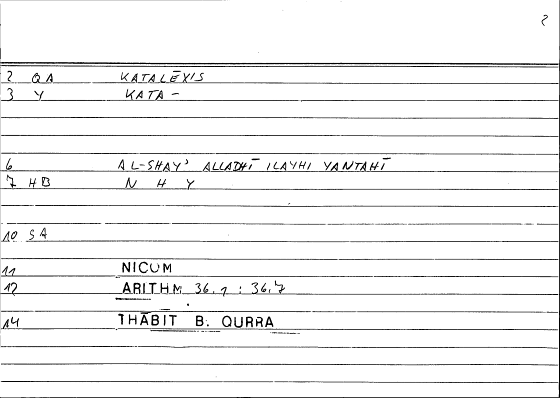 2
2 QA KATALĒXIS
3 Y KATA-
6 AL-SHAY' ALLADHĪ ILAYHI YANTAHĪ
7 HB N H Y
10 SA
11 NICUM
12 ARITHM 36.1 : 36.7
14 THĀBIT B. QURRA